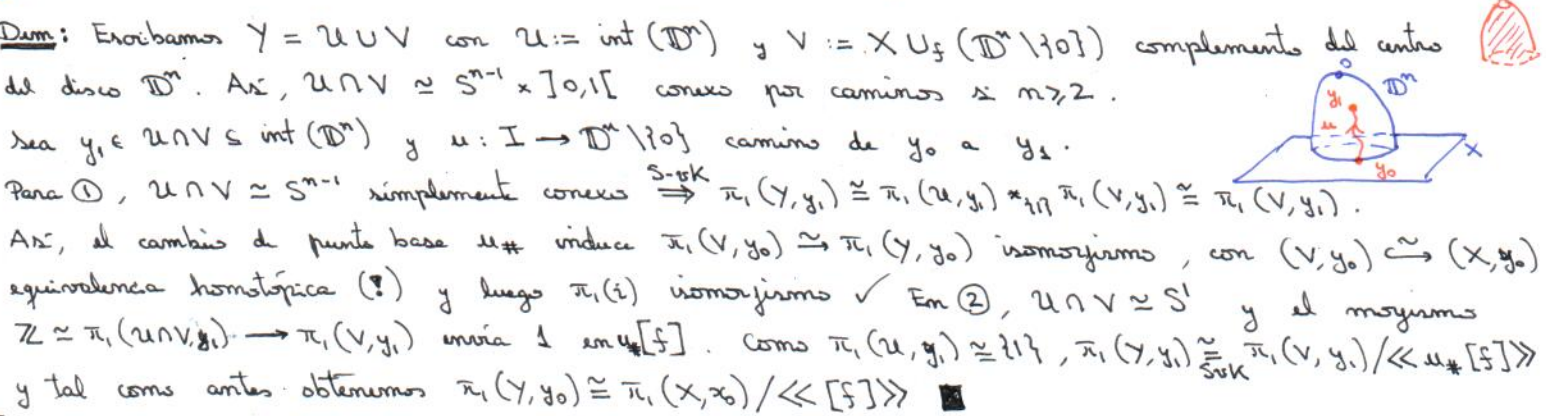 Dem: Escribamos Y = U ∪ V con U := int (𝔻ⁿ) y V := X ∪_f (𝔻ⁿ \ {0}) complemento del centro
del disco 𝔻ⁿ. Así, U ∩ V ≃ Sⁿ⁻¹ × ]0,1[ conexo por caminos si n ⩾ 2.
Sea y₁ ∈ U ∩ V ⊆ int (𝔻ⁿ) y u : I → 𝔻ⁿ \ {0} camino de y₀ a y₁.
Para ①, U ∩ V ≃ Sⁿ⁻¹ simplemente conexo ⇒^{S-vK} π₁(Y, y₁) ≅ π₁(U, y₁) *_{{1}} π₁(V, y₁) ≅ π₁(V, y₁).
Así, el cambio de punto base u_# induce π₁(V, y₀) ⥲ π₁(Y, y₀) isomorfismo, con (V, y₀) ⥲ (X, y₀)
equivalencia homotópica (!) y luego π₁(i) isomorfismo ✓ En ②, U ∩ V ≃ S¹ y el morfismo
ℤ ≃ π₁(U∩V, y₁) → π₁(V, y₁) envía 1 en u_#[f]. Como π₁(U, y₁) ≅ {1}, π₁(Y, y₁) ≅_{SvK} π₁(V, y₁) / << u_# [f] >>
y tal como antes obtenemos π₁(Y, y₀) ≅ π₁(X, x₀) / << [f] >> ■
0
𝔻ⁿ
y₁
u
X
y₀